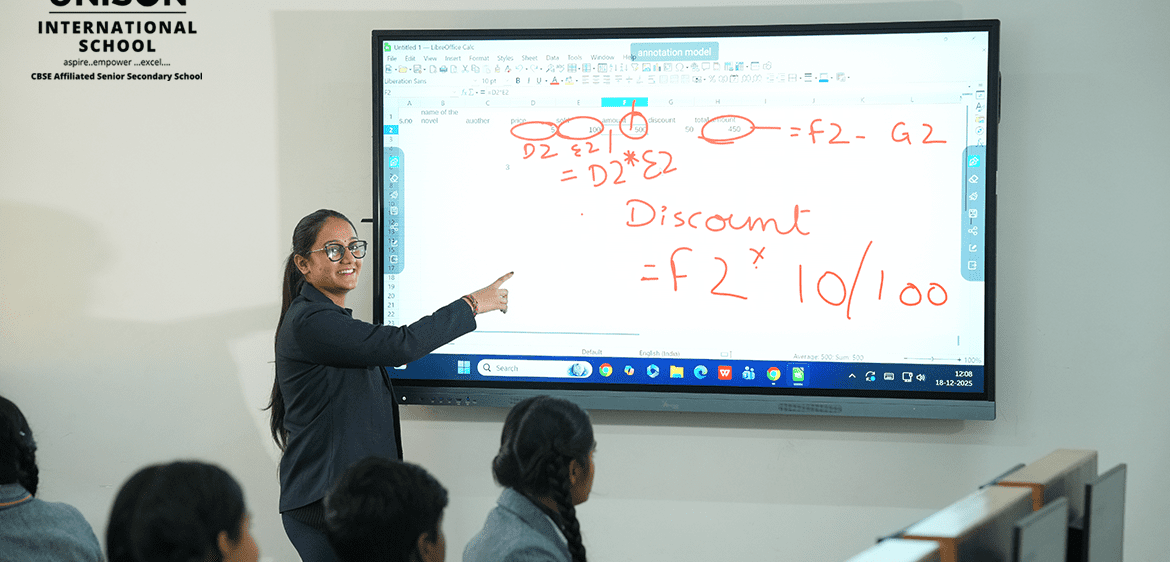 UNISON
INTERNATIONAL
SCHOOL
aspire..empower ...excel....
CBSE Affiliated Senior Secondary School
Untitled 1 — LibreOffice Calc
annotation model
File Edit View Insert Format Styles Sheet Data Tools Window Help
Liberation Sans 10 pt
F2 =D2*E2
A B C D E F G H I J K L
name of the
1 s.no novel auother price sold amount discount total amount
2 5 100 500 50 450
= F2 - G2
D2 E2
= D2*E2
Discount
= F2 * 10/100
Default English (India) Average: 500; Sum: 500 100%
Search
12:08
18-12-2025